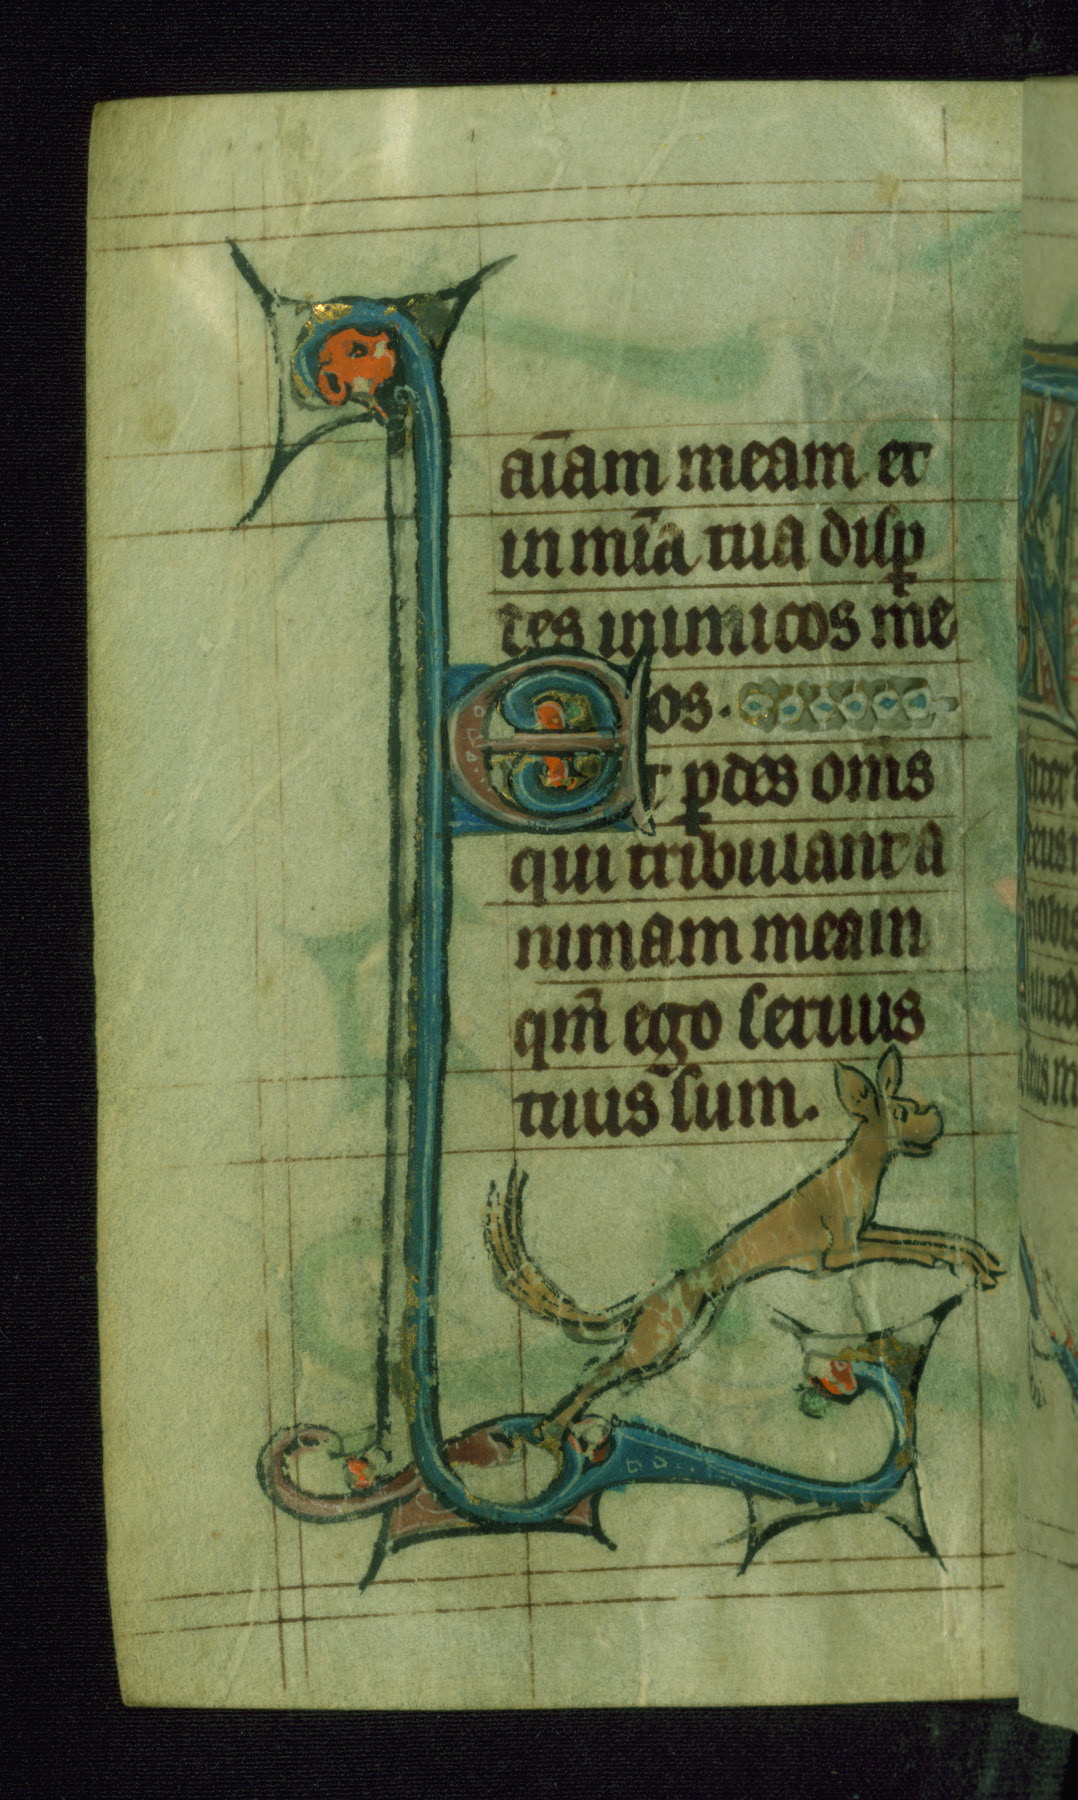 aīam meam et
in mīa tua disꝑ
des inimicos me
os.
Et ꝑdes om̄s
qui tribulant a
nimam meam
qm̄ ego seruus
tuus sum.